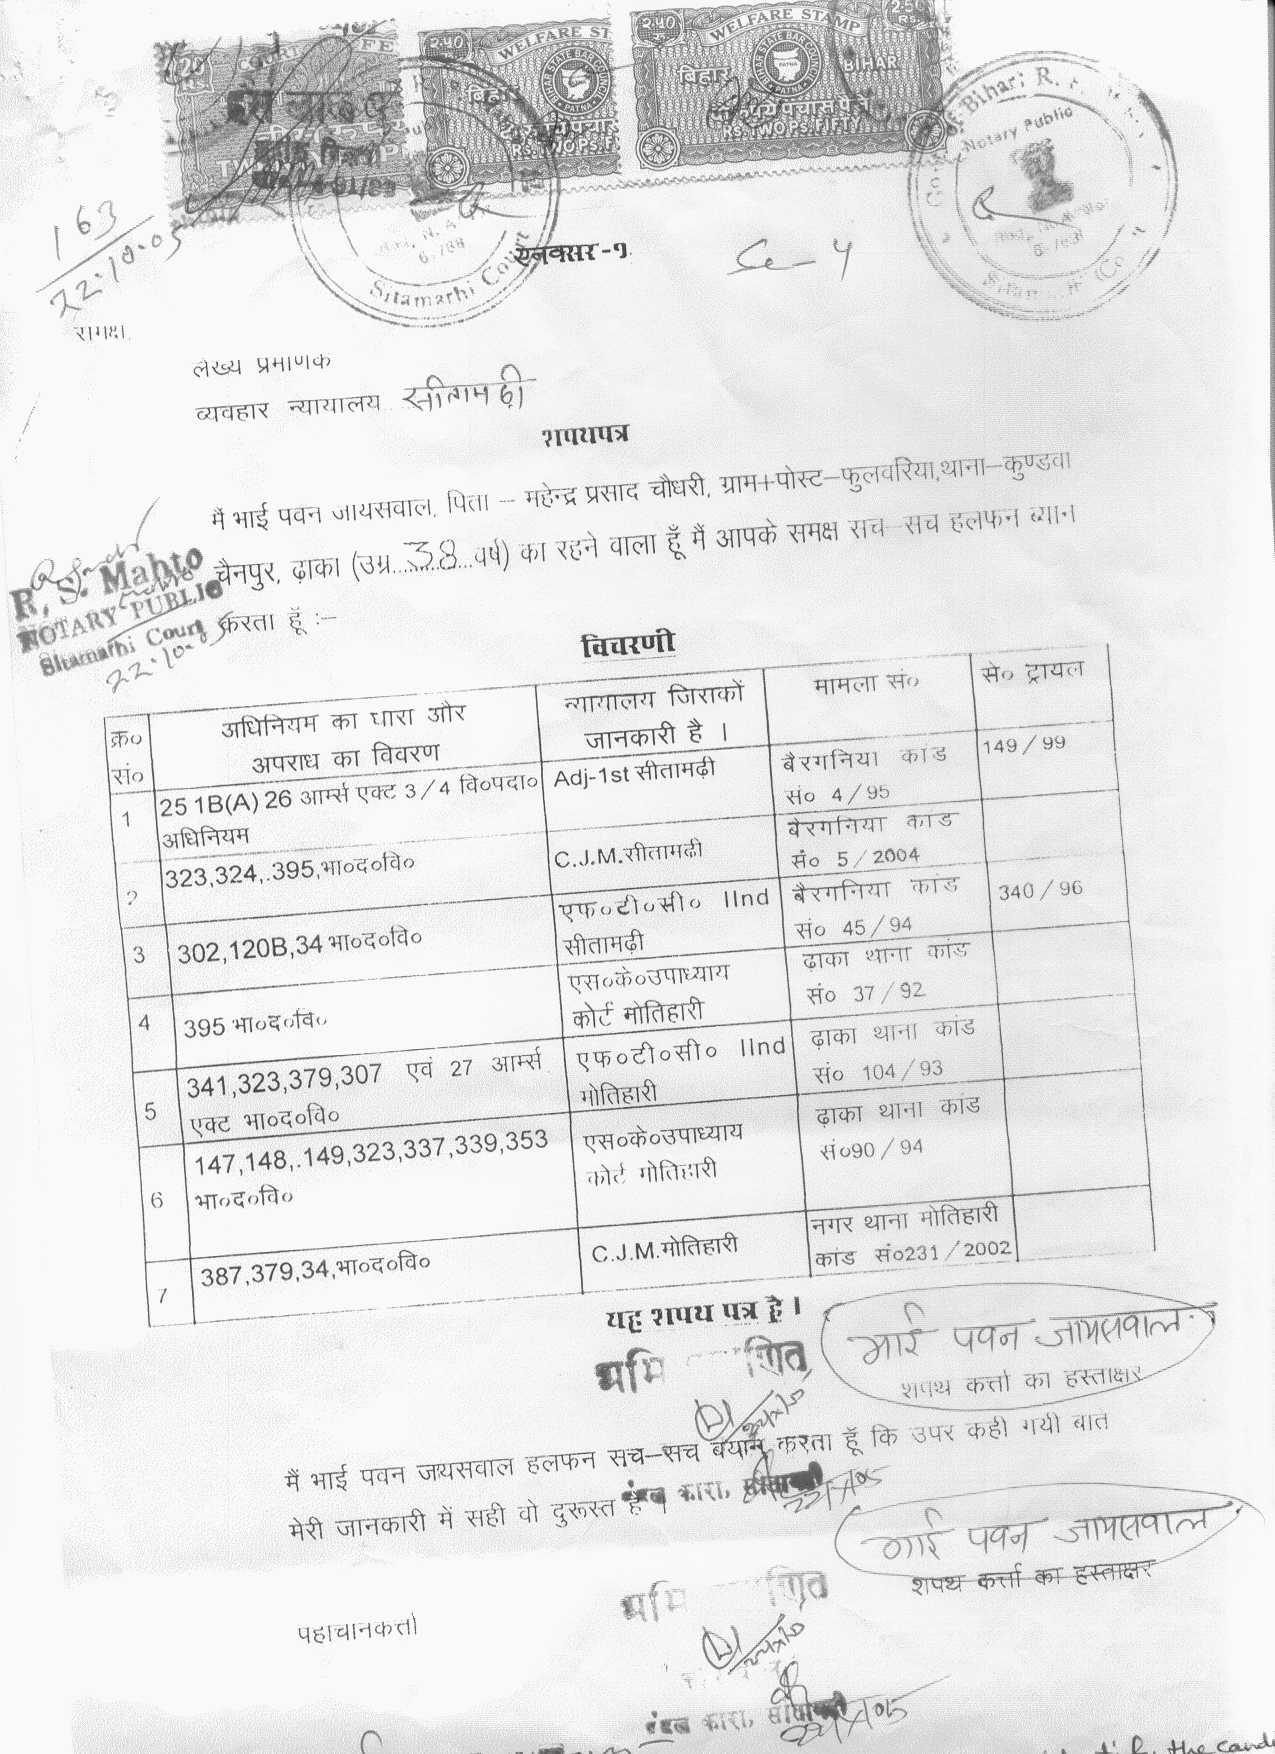 WELFARE ST
WELFARE STAMP
बिहार
BIHAR
RS. TWO PS. FIFTY
Notary Public
Sitamarhi Court
163
22.10.05
एनक्सर-१
समक्ष,
लेख्य प्रमाणक
व्यवहार न्यायालय सीतामढ़ी
शपथपत्र
मैं भाई पवन जायसवाल, पिता – महेन्द्र प्रसाद चौधरी, ग्राम+पोस्ट–फुलवरिया,थाना–कुण्डवा
चैनपुर, ढ़ाका (उम्र...38...वर्ष) का रहने वाला हूँ मैं आपके समक्ष सच–सच हलफन ब्यान
करता हूँ :–
R. S. Mahto
NOTARY PUBLIC
Sitamarhi Court
22.10.05
विवरणी
क्र० सं०
अधिनियम का धारा और अपराध का विवरण
न्यायालय जिसकों जानकारी है ।
मामला सं०
से० ट्रायल
1
25 1B(A) 26 आर्म्स एक्ट 3/4 वि०पदा०
अधिनियम
Adj-1st सीतामढ़ी
बैरगनिया कांड
सं० 4/95
149/99
2
323,324,.395,भा०द०वि०
C.J.M.सीतामढ़ी
बैरगनिया कांड
सं० 5/2004
3
302,120B,34 भा०द०वि०
एफ०टी०सी० IInd
सीतामढ़ी
बैरगनिया कांड
सं० 45/94
340/96
4
395 भा०द०वि०
एस०के०उपाध्याय
कोर्ट मोतिहारी
ढ़ाका थाना कांड
सं० 37/92
5
341,323,379,307 एवं 27 आर्म्स
एक्ट भा०द०वि०
एफ०टी०सी० IInd
मोतिहारी
ढ़ाका थाना कांड
सं० 104/93
6
147,148,.149,323,337,339,353
भा०द०वि०
एस०के०उपाध्याय
कोर्ट मोतिहारी
ढ़ाका थाना कांड
सं०90/94
7
387,379,34,भा०द०वि०
C.J.M.मोतिहारी
नगर थाना मोतिहारी
कांड सं०231/2002
यह शपथ पत्र है ।
भाई पवन जायसवाल
शपथ कर्त्ता का हस्ताक्षर
मैं भाई पवन जयसवाल हलफन सच–सच बयान करता हूँ कि उपर कही गयी बात
मेरी जानकारी में सही वो दुरूस्त है ।
भाई पवन जायसवाल
शपथ कर्त्ता का हस्ताक्षर
पहाचानकर्त्ता
कारा,